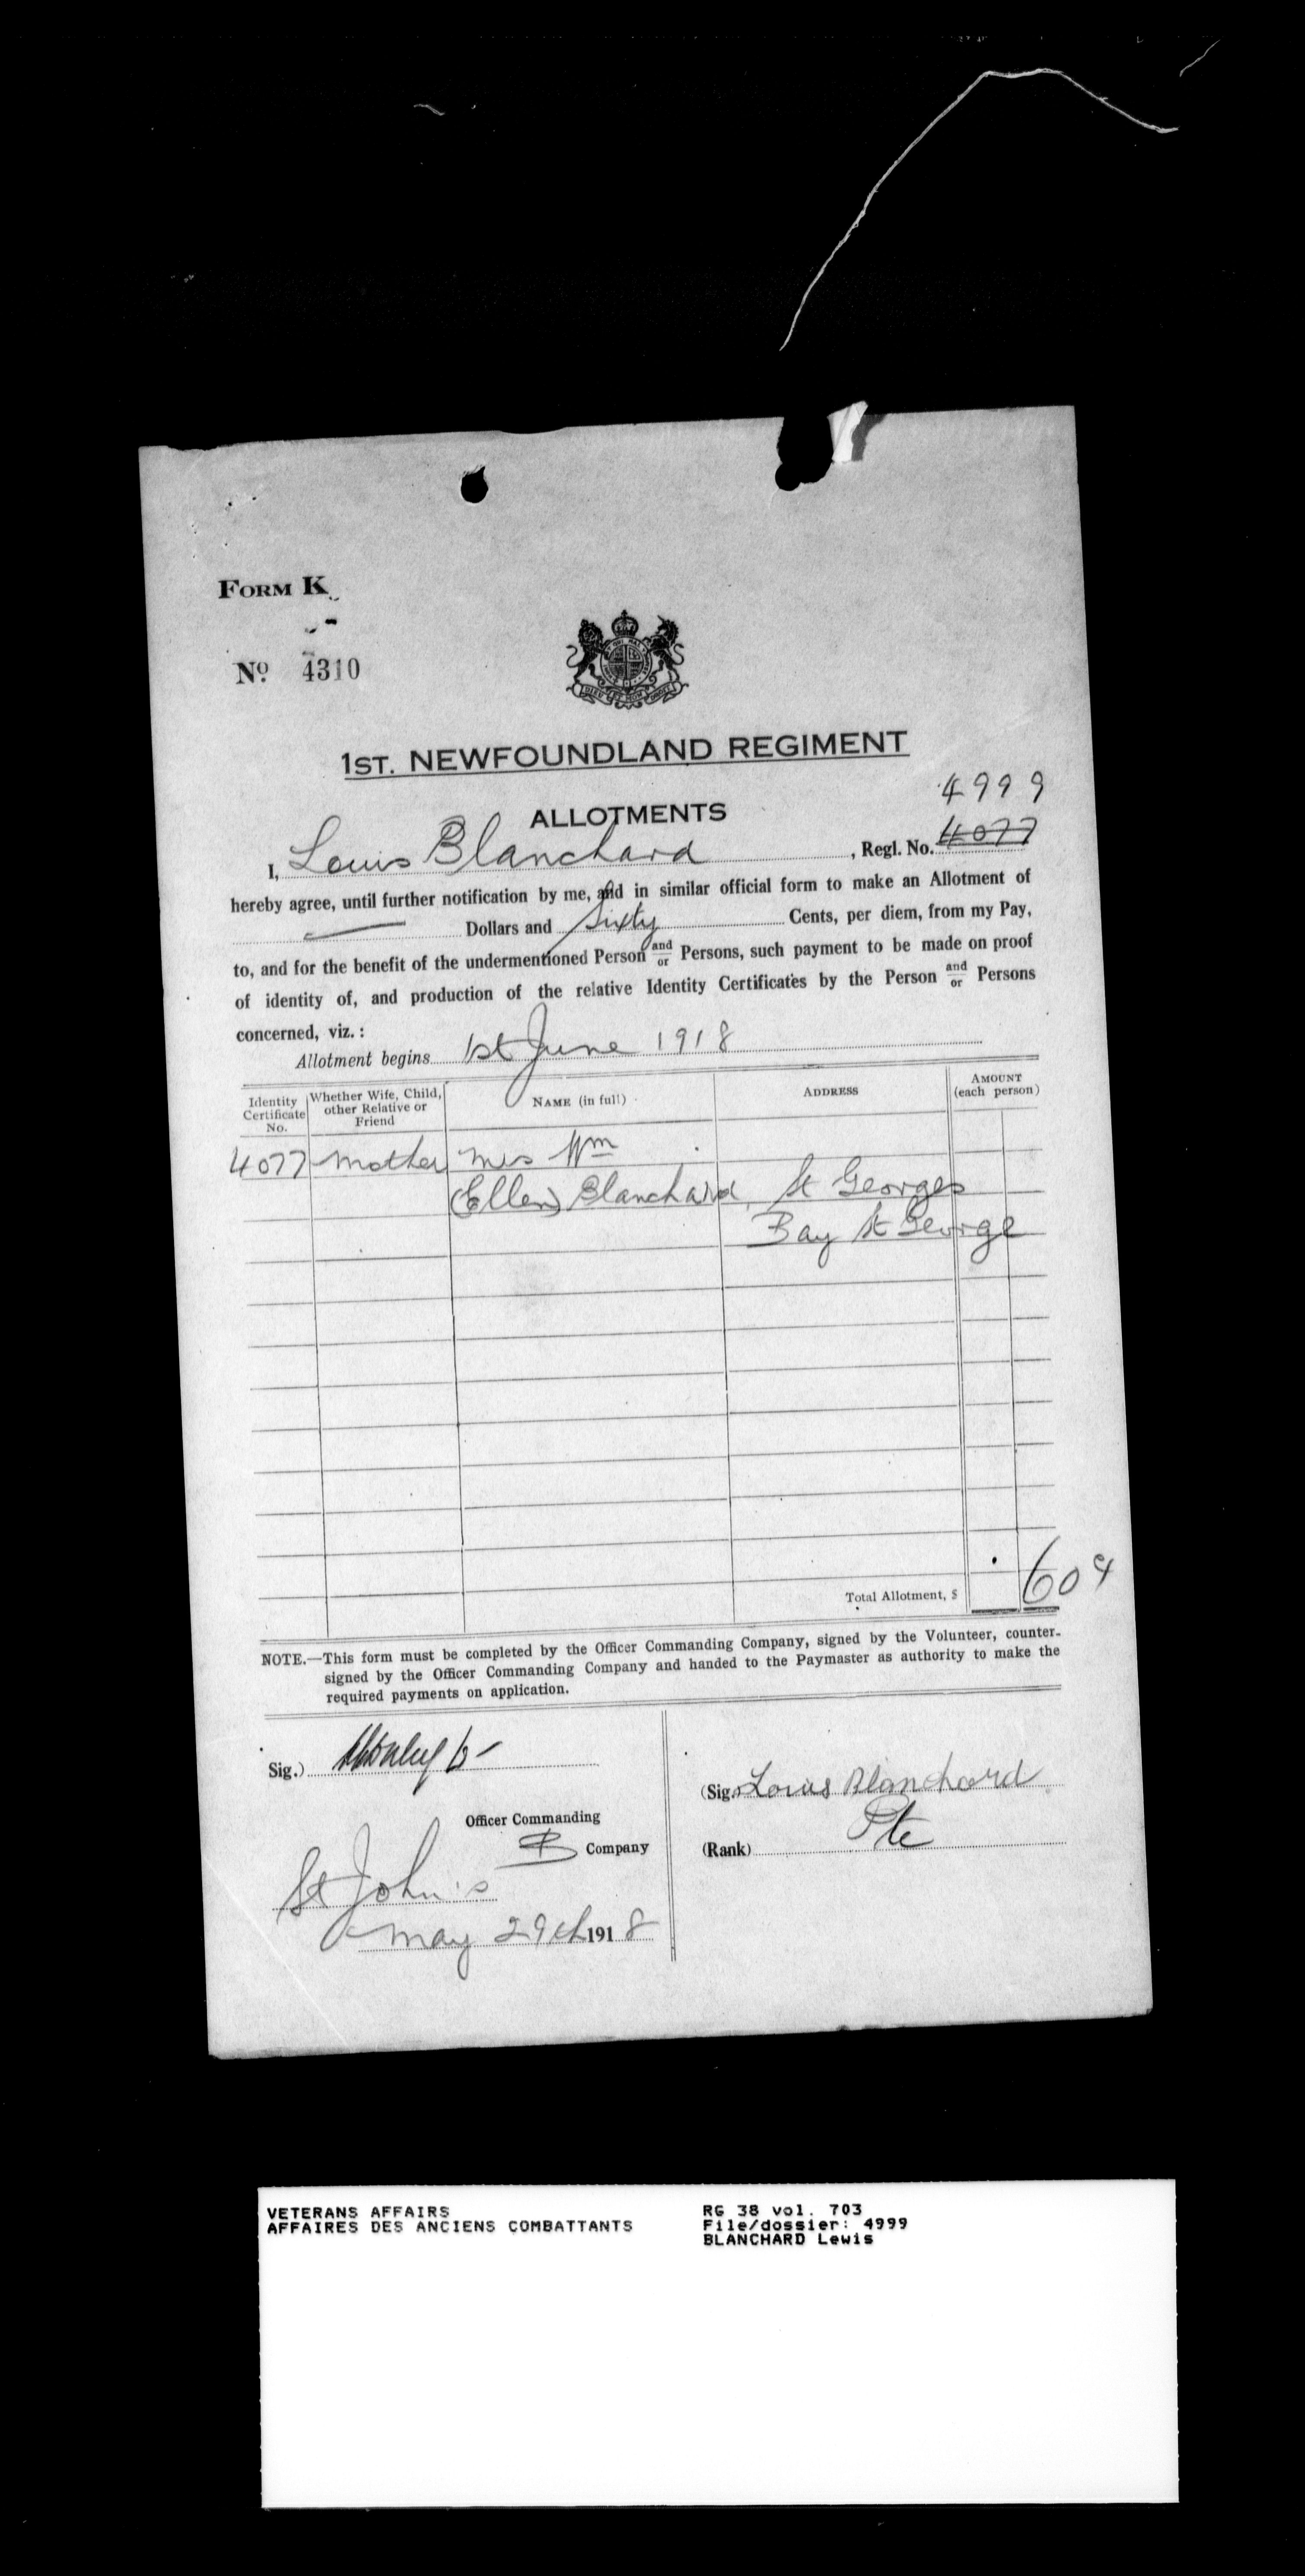 FORM K
No. 4310
1ST. NEWFOUNDLAND REGIMENT
ALLOTMENTS
4999
I, Louis Blanchard, Regl. No. 4077
hereby agree, until further notification by me, and in similar official form to make an Allotment of
— Dollars and Sixty Cents, per diem, from my Pay,
to, and for the benefit of the undermentioned Person and/or Persons, such payment to be made on proof
of identity of, and production of the relative Identity Certificates by the Person and/or Persons
concerned, viz.:
Allotment begins 1st June 1918
Identity Certificate No. Whether Wife, Child, other Relative or Friend NAME (in full) ADDRESS AMOUNT (each person)
4077 Mother Mrs Wm
(Ellen) Blanchard, St Georges
Bay St George
Total Allotment, $ . 60
NOTE.—This form must be completed by the Officer Commanding Company, signed by the Volunteer, counter-
signed by the Officer Commanding Company and handed to the Paymaster as authority to make the
required payments on application.
Sig.)
(Sig. Louis Blanchard
Officer Commanding
B Company
(Rank) Pte
St John's
May 29th 1918
VETERANS AFFAIRS
AFFAIRES DES ANCIENS COMBATTANTS
RG 38 vol. 703
File/dossier: 4999
BLANCHARD Lewis